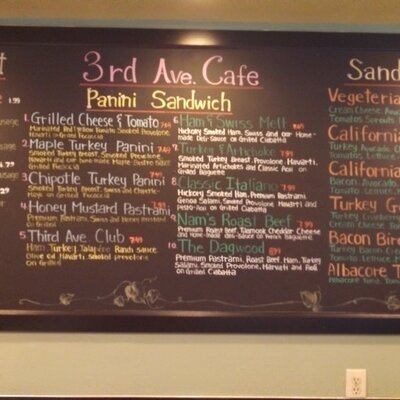 3rd Ave. Cafe
Panini Sandwich
1. Grilled Cheese & Tomato 7.49
Marinated Red & Yellow Tomato, Smoked Provolone,
Havarti on Grilled Focaccia
2. Maple Turkey Panini 7.49
Smoked Turkey Breast, Smoked Provolone,
Havarti and our home made Maple
Grilled Focaccia
3. Chipotle Turkey Panini 7.49
Smoked Turkey Breast, Swiss and Chipotle
Mayo on Grilled Focaccia
4. Honey Mustard Pastrami
Premium Pastrami, Swiss and Honey mustard
on Grilled
5. Third Ave. Club 7.49
Ham, Turkey, Jalapeno Ranch sauce
Olive oil, Havarti, smoked provolone
on Grilled
6. Ham & Swiss Melt
Hickory Smoked Ham, Swiss and our Home-
made Deli-Sauce on Grilled Ciabatta
7. Turkey & Artichoke 7.99
Smoked Turkey Breast, Provolone, Havarti,
Marinated Artichokes and Classic Aioli on
Grilled Baguette
8. Classic Italiano 7.99
Hickory Smoked Ham, Premium Pastrami,
Genoa Salami, Smoked Provolone, Havarti and
Pesto-Aioli on Grilled Ciabatta
9. Nam's Roast Beef 7.99
Premium Roast Beef, Tillamook Cheddar Cheese
and home-made Deli-Sauce on French Baguette
10. The Dagwood 7.99
Premium Pastrami, Roast Beef, Ham, Turkey
Salami, Smoked Provolone, Havarti and Aioli
on Grilled Ciabatta
Sand
Vegeteria
Cream Cheese, Avoca
Tomatoes, Sprouts,
California
Turkey, Avocado, C
Tomatoes, Lettuce,
California
Bacon, Avocado,
Tomato, Lettuce,
Turkey Cr
Turkey, Cranberry
Cream Cheese, Tom
Bacon Bir
Turkey, Bacon,
Tomato, Lettuce,
Albacore T
Albacore Tuna,